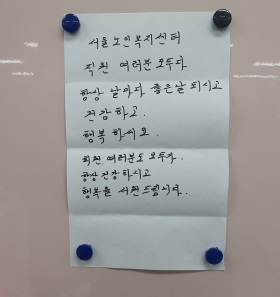 서울노인복지센터
직원 여러분 모두다
항상 날마다 좋은날 되시고
건강하고.
행복하세요.
회원 여러분도 모두가.
항상 건강하시고
행복을 서원드립니다.